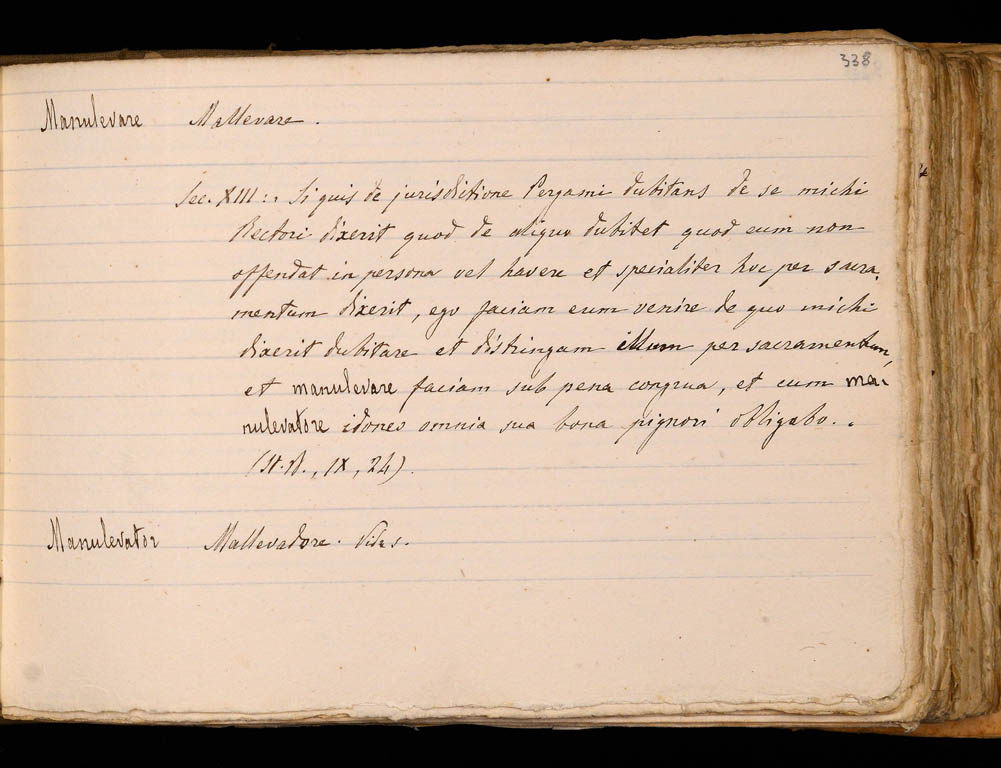 338
Manulevare Mallevare.
Sec. XIII:. Si quis de jurisditione Pergami dubitans de se michi
Rectori dixerit quod de aliquo dubitet quod eum non
offendat in persona vel havere et specialiter hoc per sacra-
mentum dixerit, ego faciam eum venire de quo michi
dixerit dubitare et distringam illum per sacramentum,
et manulevare faciam sub pena congrua, et cum ma-
nulevatore idoneo omnia sua bona pignori obligabo..
(St. A., IX, 24).
Manulevator Mallevadore.